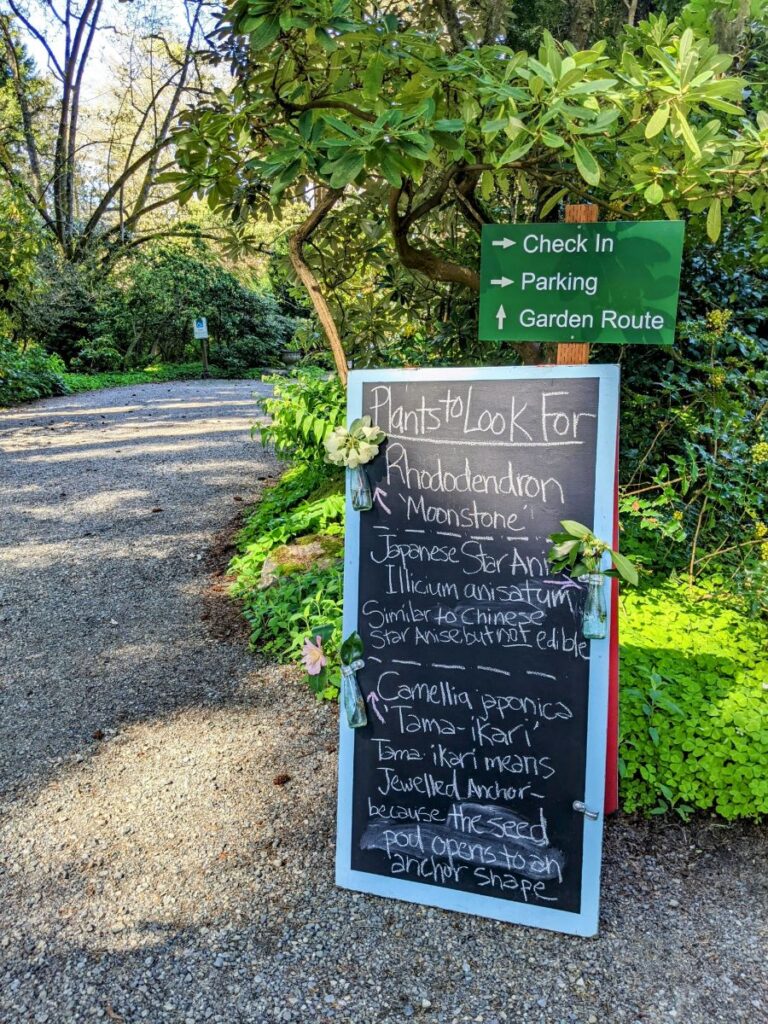 → Check In
→ Parking
↑ Garden Route
Plants to Look For
Rhododendron
'Moonstone'
Japanese Star Ani
Illicium anisatum
Similar to Chinese
Star Anise but not edible
Camellia japonica
'Tama-ikari'
Tama-ikari means
Jewelled Anchor-
because the seed
pod opens to an
anchor shape